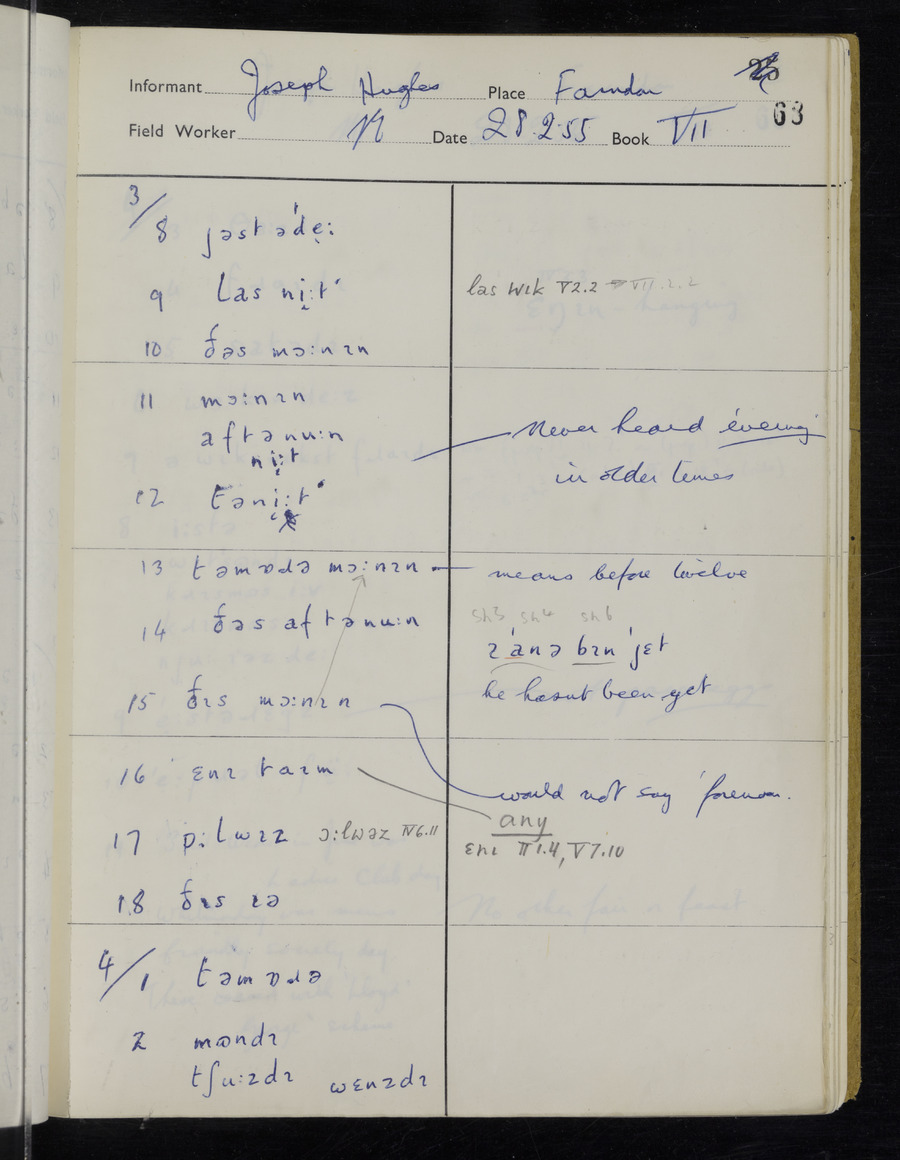 Informant Joseph Hughes Place Farndon
63
Field Worker Date 28.2.55 Book VII
3/
8 jəstəˈdẹː
9 las niːt las wɪk V2.2 VII.2.2
10 ðəs mɔːnɪn
11 mɔːnɪn
aftənuːn Never heard evening
niːt
in older times
12 təniːt
13 təmɒdə mɔːnɪn means before twelve
sh3 sh4 sh6
14 ðəs aftənuːn
ɪ ˈanə bɪn ˈjɛt
15 ðɪs mɔːnɪn he hasn't been yet
16 ɛnɪ taɪm would not say 'forenoon.
any
17 ɒːlwɪz ɔːlwəz IV6.11
ɛnɪ II1.4, V7.10
18 ðɪs ɪə
4/1 təmɒdə
2 mɒndɪ
tʃuːzdɪ wɛnzdɪ